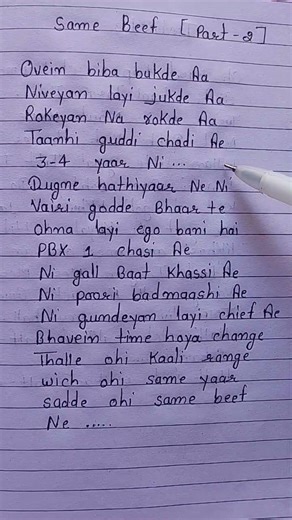 Same Beef [Part-2]
Ovein biba bukde Aa
Niveyan layi jukde Aa
Rokeyan Na rokde Aa
Taanhi guddi chadi Ae
3-4 yaar Ni ...
Dugne hathiyaar Ne Ni
Vairi godde Bhaar te
Ohma layi ego bani hai
PBX 1 chasi Ae
Ni gall Baat khassi Ae
Ni poori badmaashi Ae
Ni gumdeyan layi chief Ae
Bhavein time hoya change
Thalle ohi kaali range
wich ohi same yaar
sadde ohi same beef
Ne .....